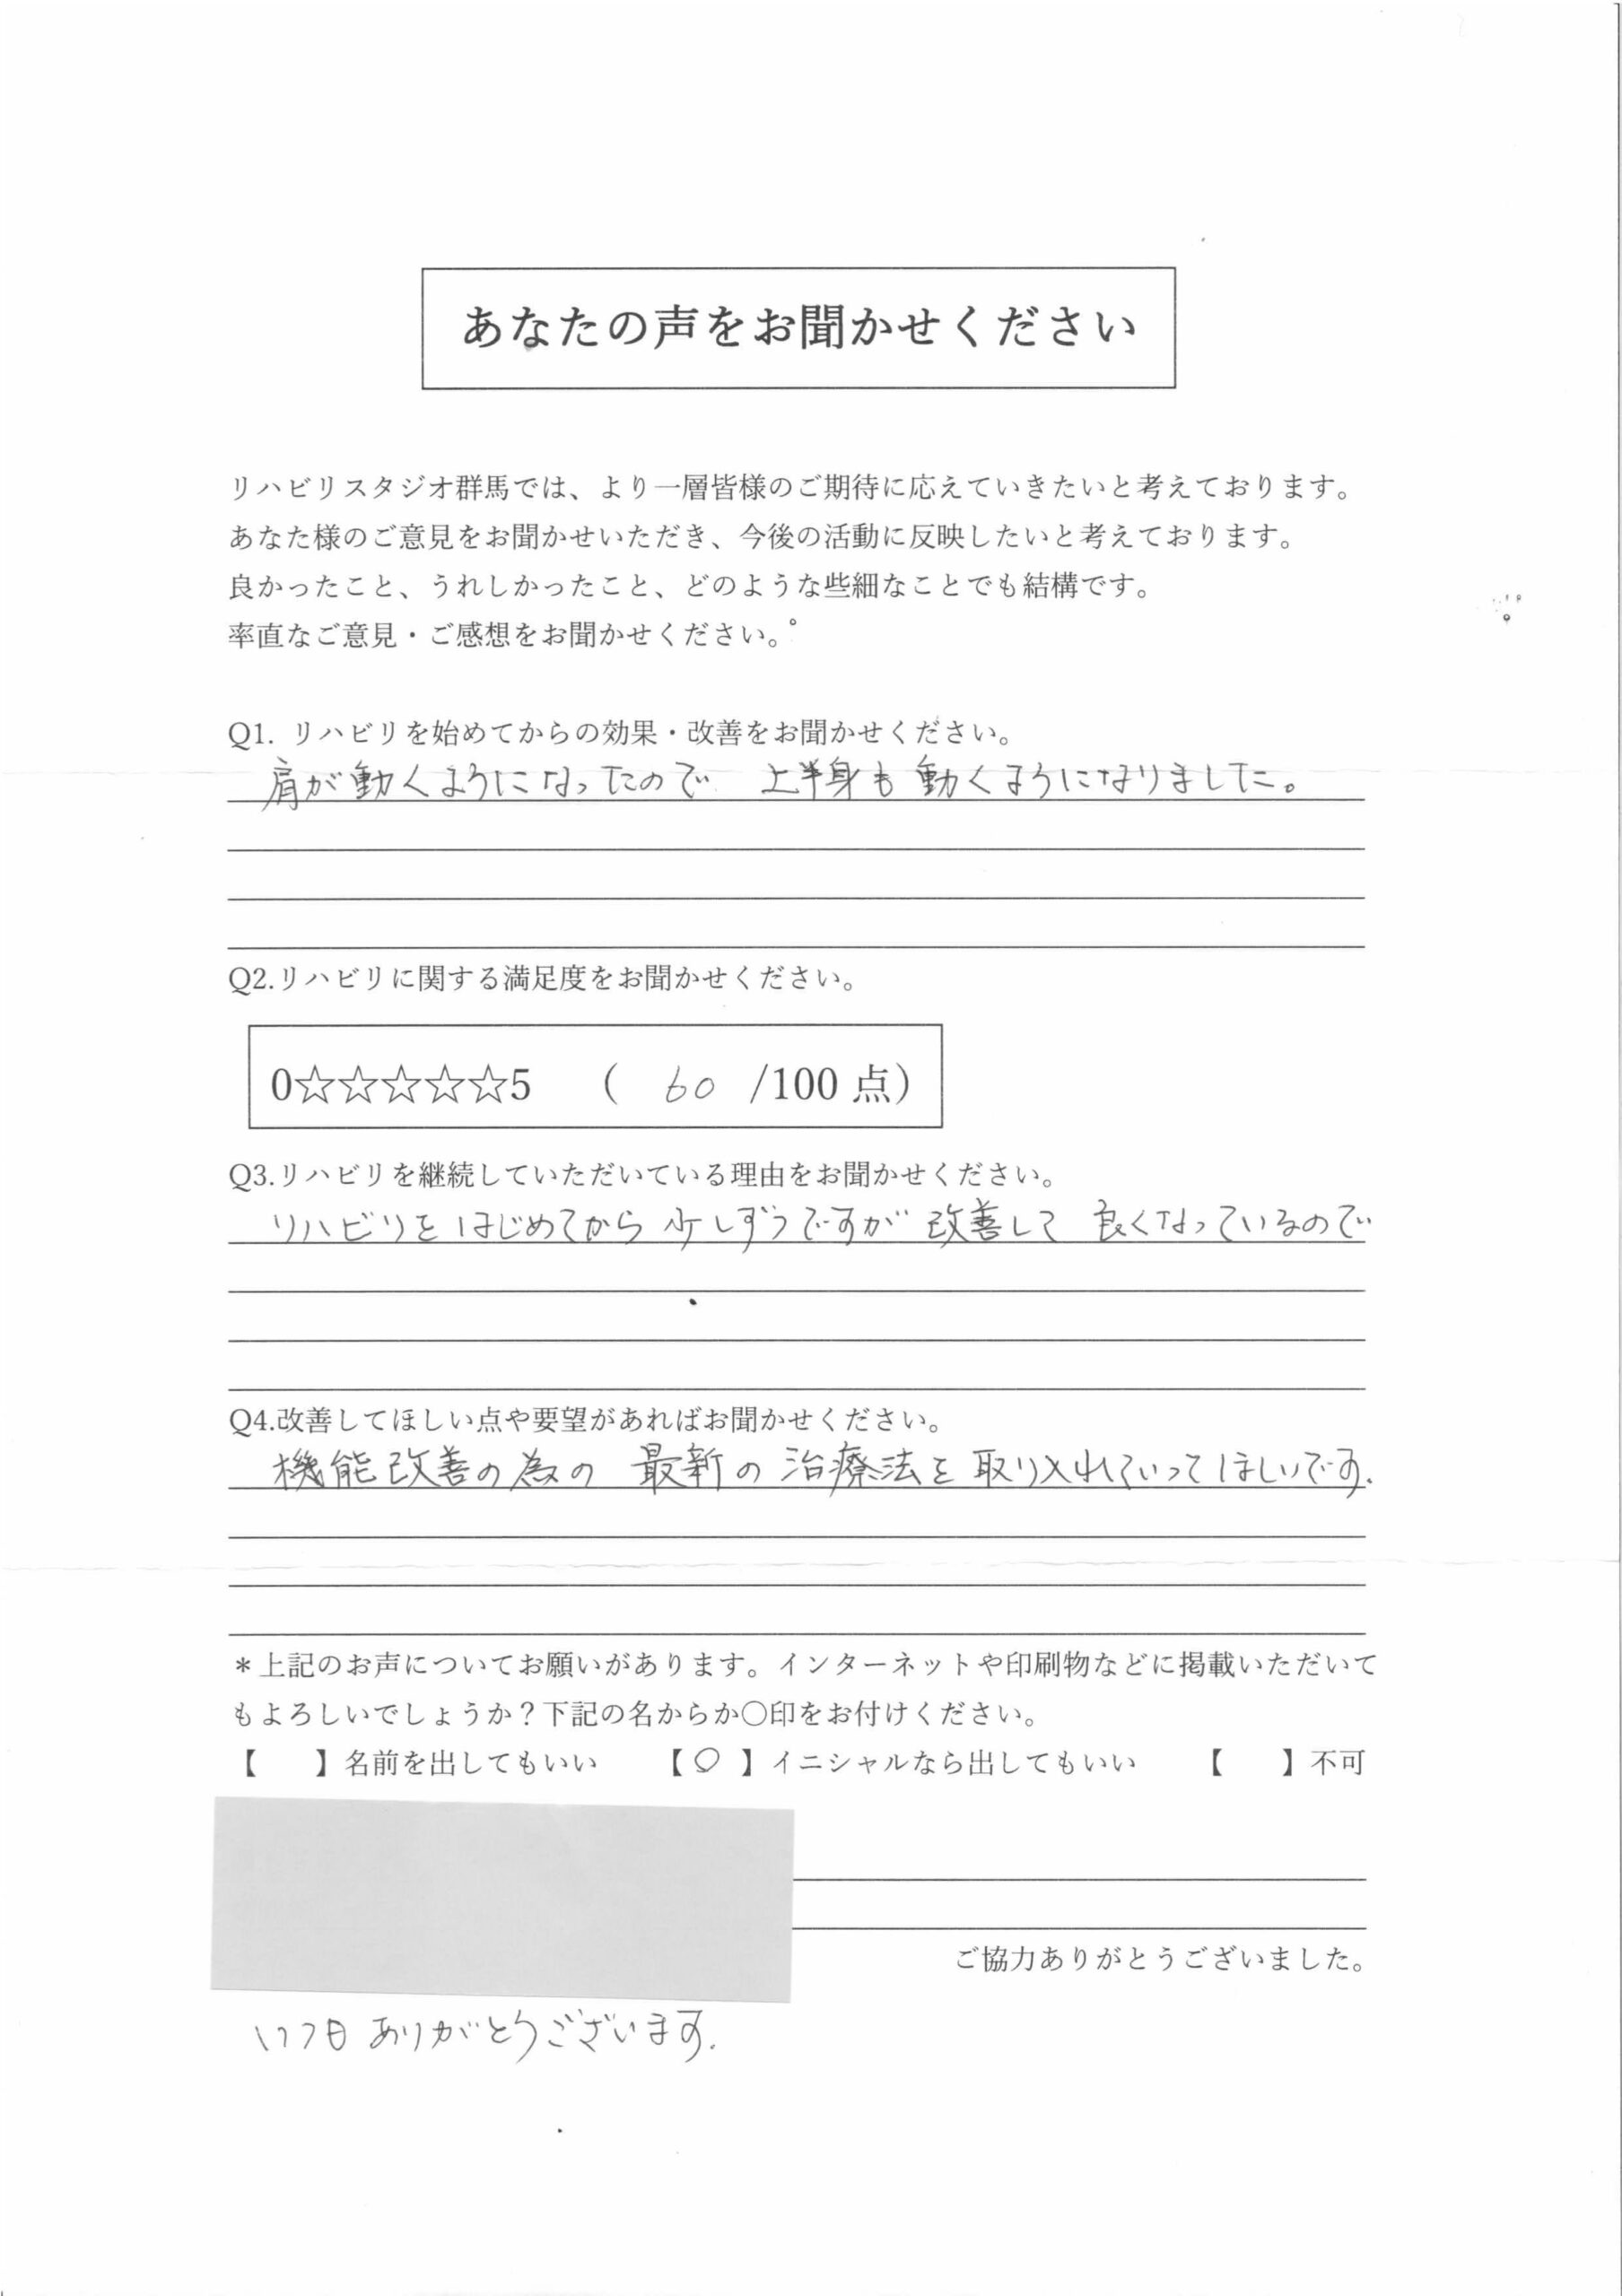 あなたの声をお聞かせください
リハビリスタジオ群馬では、より一層皆様のご期待に応えていきたいと考えております。
あなた様のご意見をお聞かせいただき、今後の活動に反映したいと考えております。
良かったこと、うれしかったこと、どのような些細なことでも結構です。
率直なご意見・ご感想をお聞かせください。
Q1. リハビリを始めてからの効果・改善をお聞かせください。
肩が動くようになったので 上半身も動くようになりました。
Q2.リハビリに関する満足度をお聞かせください。
0☆☆☆☆☆5 ( 60 /100 点)
Q3.リハビリを継続していただいている理由をお聞かせください。
リハビリをはじめてから少しずつですが改善して 良くなっているので
Q4.改善してほしい点や要望があればお聞かせください。
機能改善の為の 最新の治療法を取り入れていってほしいです.
＊上記のお声についてお願いがあります。インターネットや印刷物などに掲載いただいて
もよろしいでしょうか？下記の名からか〇印をお付けください。
【 】名前を出してもいい 【〇】イニシャルなら出してもいい 【 】不可
ご協力ありがとうございました。
いつもありがとうございます.